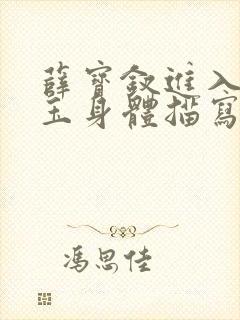 薛寶釵進入
玉身體描寫
馮思佳